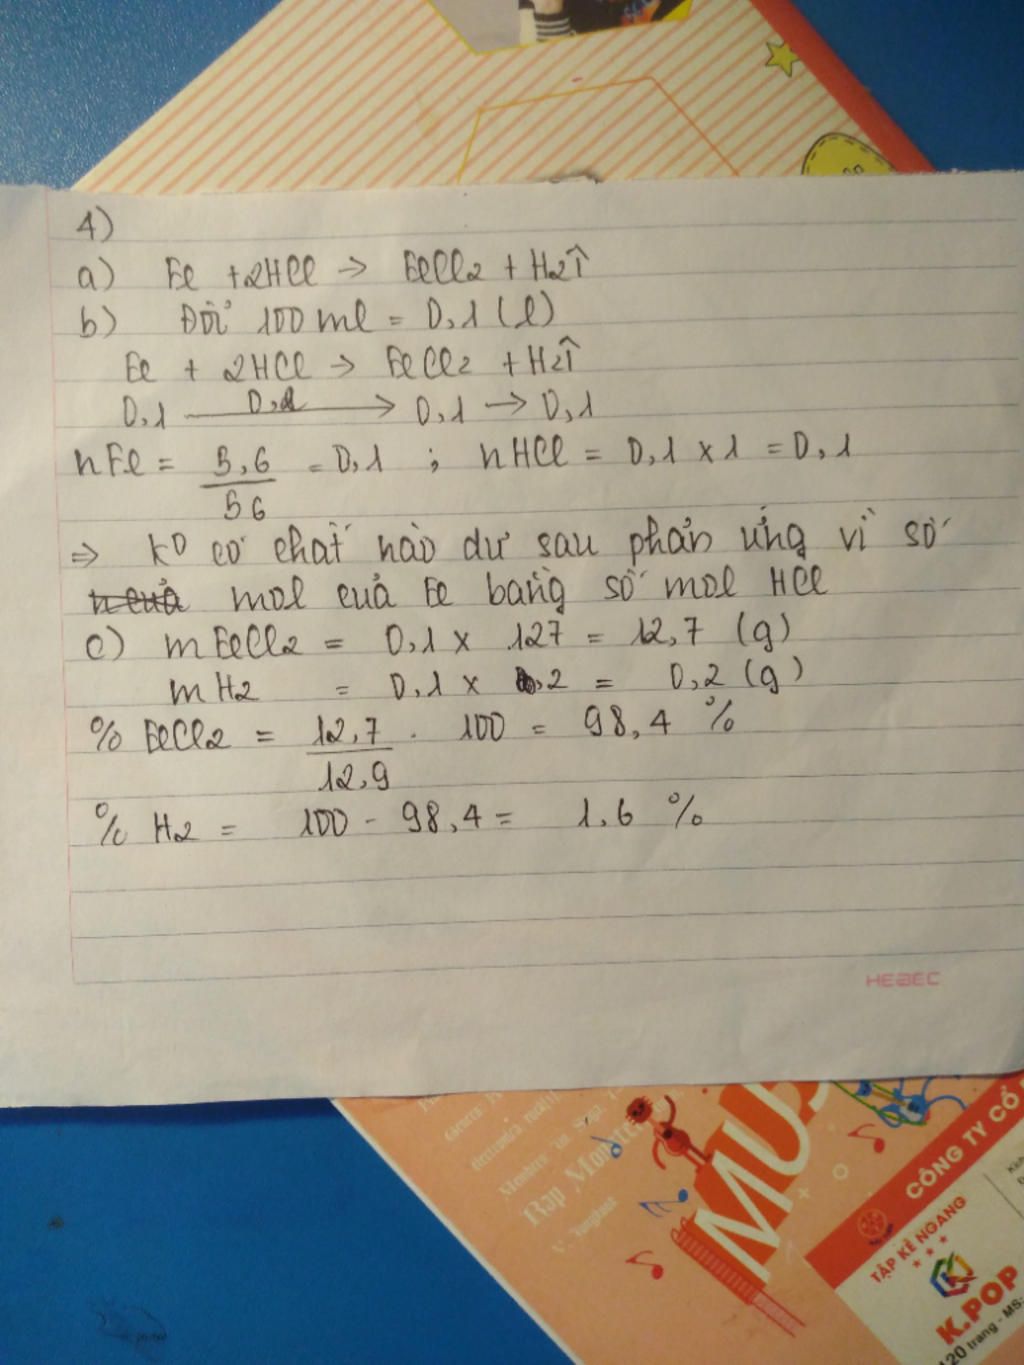 4)
a) Fe + 2HCl → FeCl2 + H2↑
b) Đổi 100 ml = 0,1 (l)
Fe + 2HCl → FeCl2 + H2↑
0,1 0,2 → 0,1 → 0,1
nFe = 5,6/56 = 0,1 ; nHCl = 0,1 x 1 = 0,1
⇒ ko có chất nào dư sau phản ứng vì số
mol của Fe bằng số mol HCl
c) mFeCl2 = 0,1 x 127 = 12,7 (g)
mH2 = 0,1 x 2 = 0,2 (g)
% FeCl2 = 12,7/12,9 . 100 = 98,4 %
% H2 = 100 - 98,4 = 1,6 %
HEBEC
Rap Monster
V. Jungkook
MUS
CÔNG TY CỔ
TẬP KẺ NGANG
K.POP
120 trang - MS: